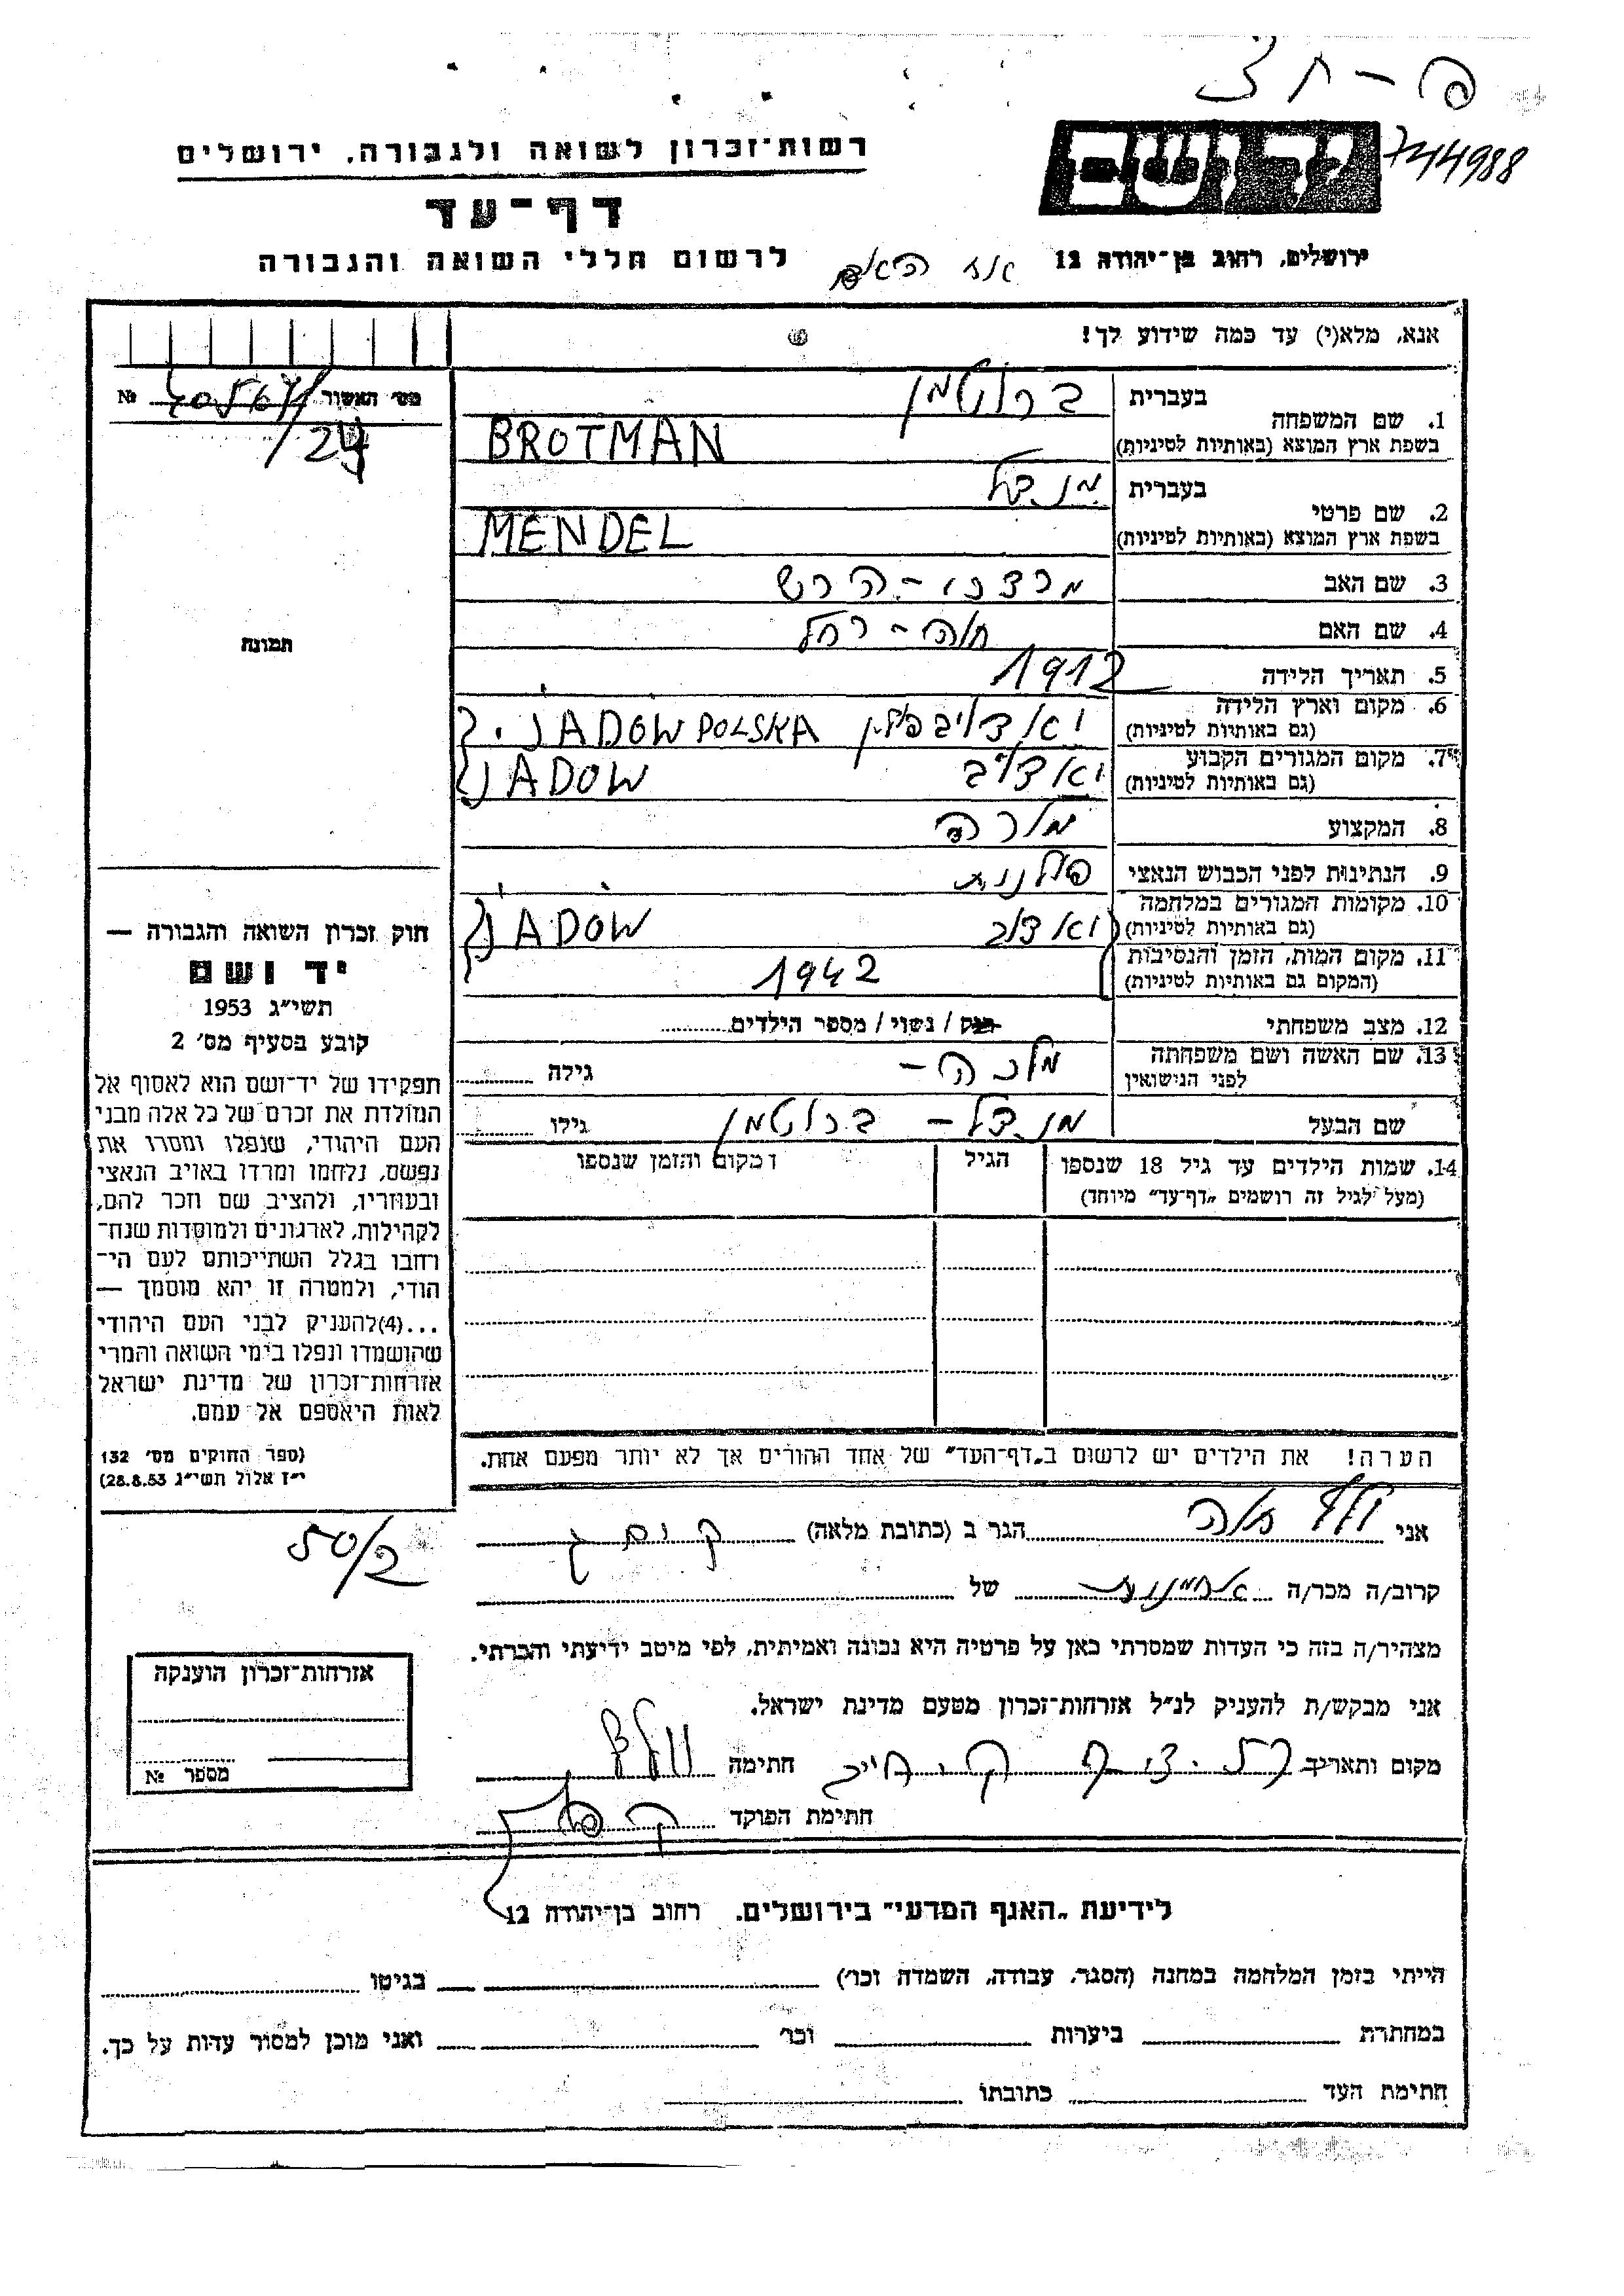 744988
רשות־זכרון לשואה ולגבורה, ירושלים
דף־עד
ירושלים, רחוב בן־יהודה 12
לרשום חללי השואה והגבורה
אנא, מלא(י) עד כמה שידוע לך!
מס׳ האשור №
/24
1. שם המשפחה
בעברית ברוטמן
בשפת ארץ המוצא (באותיות לטיניות) BROTMAN
2. שם פרטי
בעברית מנדל
בשפת ארץ המוצא (באותיות לטיניות) MENDEL
3. שם האב
4. שם האם חוה - רחל
5. תאריך הלידה 1912
6. מקום וארץ הלידה
(גם באותיות לטיניות) יאדוב פולין JADOW POLSKA
7. מקום המגורים הקבוע
(גם באותיות לטיניות) יאדוב JADOW
8. המקצוע מורה
9. הנתינות לפני הכבוש הנאצי פולנית
10. מקומות המגורים במלחמה
(גם באותיות לטיניות) יאדוב JADOW
11. מקום המות, הזמן והנסיבות
(המקום גם באותיות לטיניות) 1942
12. מצב משפחתי רווק / נשוי / מספר הילדים
13. שם האשה ושם משפחתה
לפני הנישואין מלכה - גילה
שם הבעל מנדל - ברוטמן גילו
14. שמות הילדים עד גיל 18 שנספו
(מעל לגיל זה רושמים „דף־עד״ מיוחד)
הגיל
מקום והזמן שנספו
הערה! את הילדים יש לרשום ב„דף־העד״ של אחד ההורים אך לא יותר מפעם אחת.
תמונה
חוק זכרון השואה והגבורה —
יד ושם
תשי״ג 1953
קובע בסעיף מס׳ 2
תפקידו של יד־ושם הוא לאסוף אל
המולדת את זכרם של כל אלה מבני
העם היהודי, שנפלו ומסרו את
נפשם, נלחמו ומרדו באויב הנאצי
ובעוזריו, ולהציב שם וזכר להם,
לקהילות, לארגונים ולמוסדות שנח־
רבו בגלל השתייכותם לעם הי־
הודי, ולמטרה זו יהא מוסמך —
...(4)להעניק לבני העם היהודי
שהושמדו ונפלו בימי השואה והמרי
אזרחות־זכרון של מדינת ישראל
לאות היאספם אל עמם.
(ספר החוקים מס׳ 132
י״ז אלול תשי״ג 28.8.53)
50/2
אני הגר ב (כתובת מלאה)
קרוב/ה מכר/ה של
מצהיר/ה בזה כי העדות שמסרתי כאן על פרטיה היא נכונה ואמיתית, לפי מיטב ידיעתי והכרתי.
אני מבקש/ת להעניק לנ״ל אזרחות־זכרון מטעם מדינת ישראל.
מקום ותאריך חתימה
חתימת הפוקד
אזרחות־זכרון הוענקה
מספר №
לידיעת „האגף המדעי״ בירושלים. רחוב בן־יהודה 12
הייתי בזמן המלחמה במחנה (הסגר, עבודה, השמדה וכו׳) בגיטו
במחתרת ביערות וכו׳ ואני מוכן למסור עדות על כך.
חתימת העד כתובתו